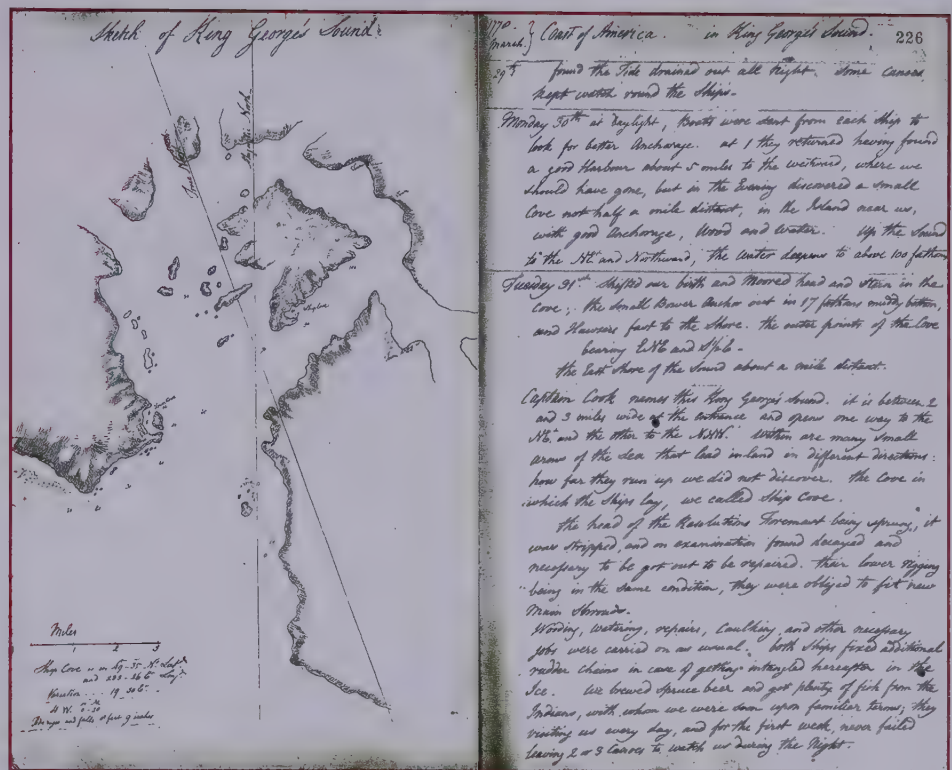 Sketch of King George's Sound.
True North
Magnetic North
Ship Cove
Miles
1 2 3
Ship Cove is in 49-35 N. Latde
and 233-26 E Longde
Variation 19.30 E.
H W
Do rises and falls 8 feet 9 inches
1770
March. } Coast of America. in King George's Sound. 226
29th found the Tide drained out all Night. Some canoes
kept watch round the Ships.
Monday 30th at Daylight, Boats were sent from each Ship to
look for better Anchorage. at 1 they returned having found
a good Harbour about 5 miles to the westward, where we
should have gone, but in the Evening discovered a small
Cove not half a mile distant, in the Island near us,
with good Anchorage, Wood and Water. Up the Sound
to the NE and Northward, the water deepens to above 100 fathoms
Tuesday 31st Shifted our birth and Moored head and stern in the
Cove; the Small Bower Anchor out in 17 fathoms muddy bottom,
and Hawsers fast to the Shore. the outer points of the Cove
bearing and
the East Shore of the Sound about a mile distant.
Captain Cook names this King George's Sound. it is between 2
and 3 miles wide at the entrance and opens one way to the
NE. and the other to the NNW. Within are many small
arms of the Sea that lead inland in different directions:
how far they run up we did not discover. the Cove in
which the Ships lay, we called Ship Cove.
the head of the Resolutions Foremast being sprung, it
was stripped, and on examination found decayed and
necessary to be got out to be repaired. their lower rigging
being in the same condition, they were obliged to fit new
Main Shrouds.
Wooding, watering, repairs, Caulking, and other necessary
jobs were carried on as usual. both Ships fixed additional
rudder chains in case of getting intangled hereafter in the
Ice. We brewed spruce beer and got plenty of fish from the
Indians, with whom we were soon upon familiar terms; they
visiting us every day, and for the first week, never failed
leaving 2 or 3 Canoes to watch us during the Night.